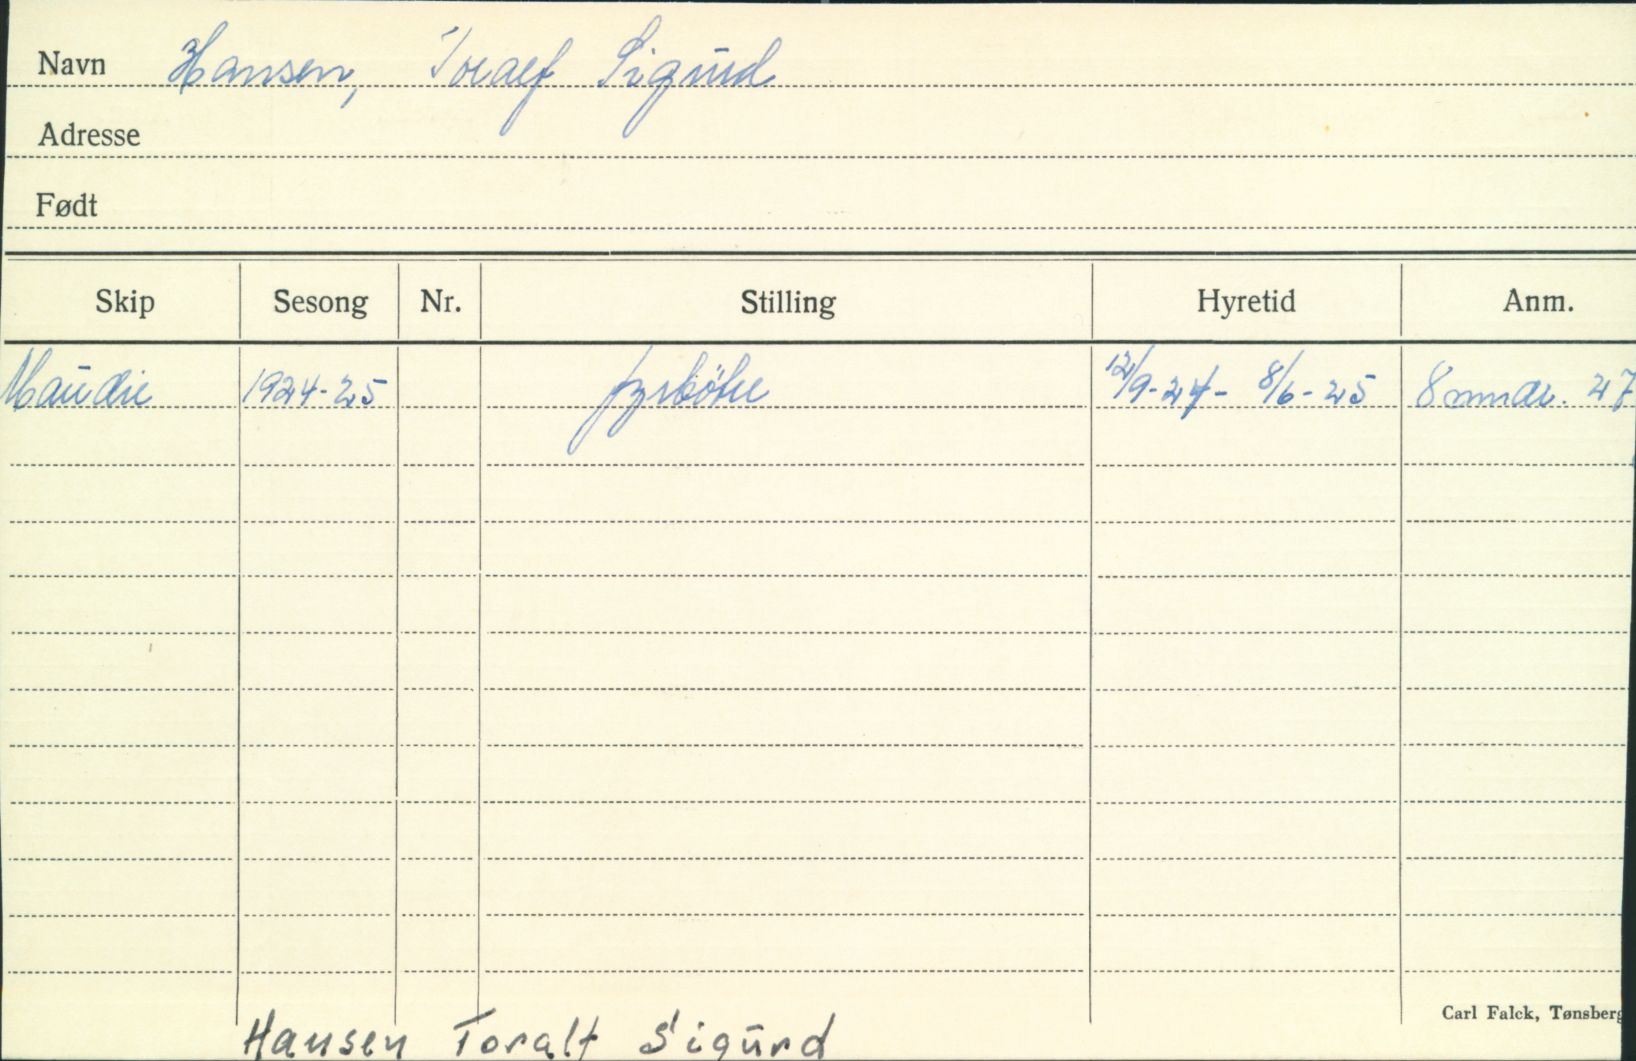 Navn Hansen, Toralf Sigurd
Adresse
Født
Skip Sesong Nr. Stilling Hyretid Anm.
Maudie 1924-25 fyrbøter 12/9-24- 8/6-25 8 mndr. 27
Carl Falck, Tønsberg
Hansen Toralf Sigurd